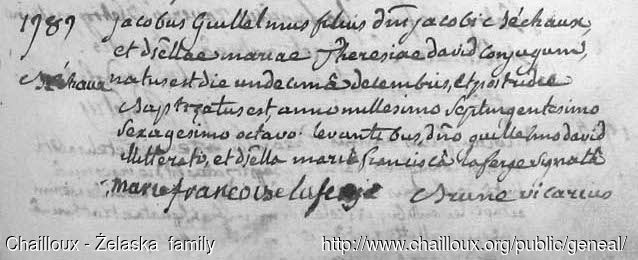 1989 jacobus Guillelmus filius dni jacobi c séchaux,
et dsellae mariae Theresiae david conjugum,
séchaux natus est die undecimâ decembris, et postridie
Baptizatus est, anno millesimo septingentesimo
sexagesimo octavo. levantibus, dno guillelmo david
illitterato, et dsella mariâ franciscâ laferge signatâ
marie francoise laferge Brune vicarius
Chailloux - Żelaska family http://www.chailloux.org/public/geneal/